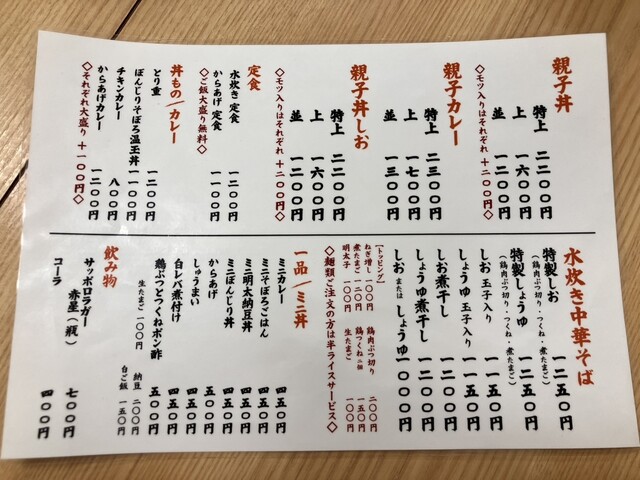 親子丼
特上 二二〇〇円
上 一六〇〇円
並 一二〇〇円
◇モツ入りはそれぞれ+二〇〇円◇
親子カレー
特上 二三〇〇円
上 一七〇〇円
並 一三〇〇円
親子丼しお
特上 二二〇〇円
上 一六〇〇円
並 一二〇〇円
◇モツ入りはそれぞれ+二〇〇円◇
定食
水炊き定食 一二〇〇円
からあげ定食 一一〇〇円
◇ご飯大盛り無料◇
丼もの/カレー
とり重 一二〇〇円
ぼんじりそぼろ温玉丼 一一〇〇円
チキンカレー 八〇〇円
からあげカレー 一二〇〇円
◇それぞれ大盛り+一〇〇円◇
水炊き中華そば
特製しお 一二五〇円
(鶏肉ぶつ切り・つくね・煮たまご)
特製しょうゆ 一二五〇円
(鶏肉ぶつ切り・つくね・煮たまご)
しお玉子入り 一一五〇円
しょうゆ玉子入り 一一五〇円
しお煮干し 一二〇〇円
しょうゆ煮干し 一二〇〇円
しおまたはしょうゆ 一〇〇〇円
【トッピング】
ねぎ増し 一〇〇円 鶏肉ぶつ切り 二〇〇円
煮たまご 一二〇円 鶏つくね二個 一五〇円
明太子 一五〇円 生たまご 一〇〇円
◇麺類ご注文の方は半ライスサービス◇
一品/ミニ丼
ミニカレー 四五〇円
ミニそぼろごはん 四五〇円
ミニ明太納豆丼 四五〇円
ミニぼんじり丼 四五〇円
からあげ 五〇〇円
しゅうまい 四五〇円
白レバ煮付け 四五〇円
鶏ぶつとつくねポン酢 五五〇円
生たまご 一〇〇円 納豆 二〇〇円
白ご飯 一五〇円
飲み物
サッポロラガー
赤星(瓶) 七〇〇円
コーラ 四〇〇円